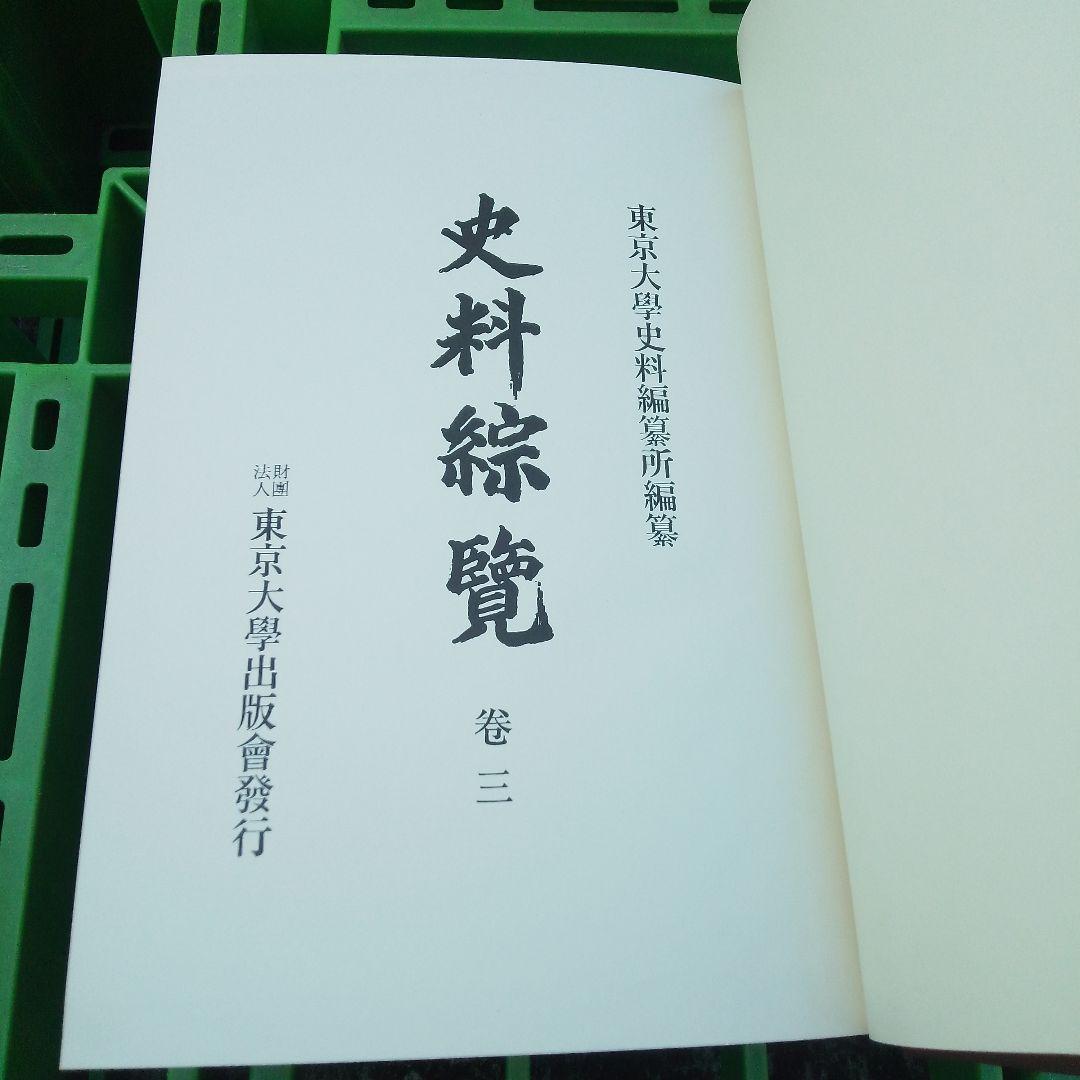 東京大學史料編纂所編纂
史料綜覽 卷三
財團法人 東京大學出版會發行